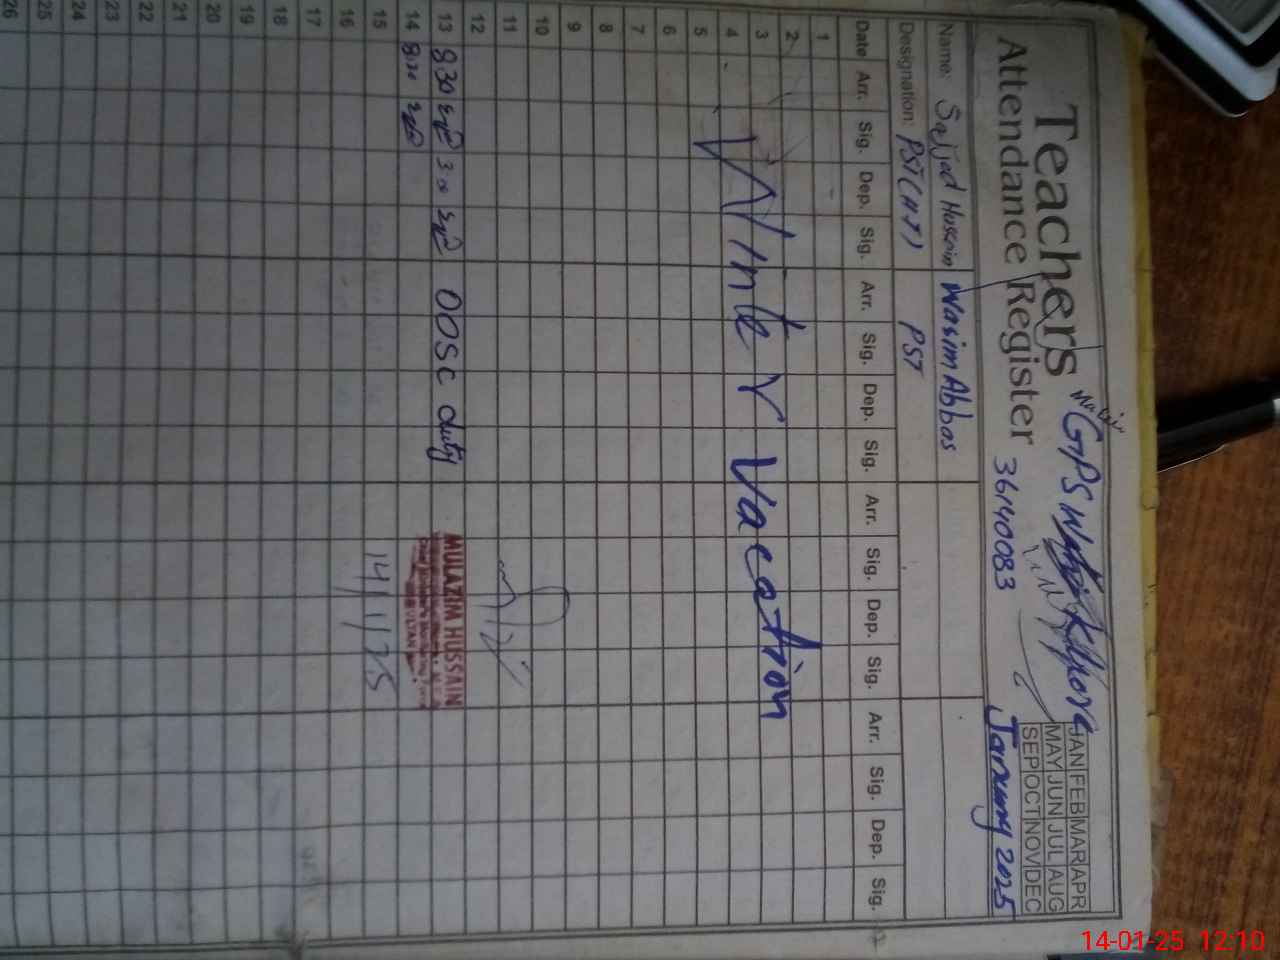 Teachers
Attendance Register
GPS
36140083
JAN FEB MAR APR
MAY JUN JUL AUG
SEP OCT NOV DEC
January 2025
Name: Sajjad Hussain Wasim Abbas
Designation: PST (H.T) PST
Date Arr. Sig. Dep. Sig. Arr. Sig. Dep. Sig. Arr. Sig. Dep. Sig. Arr. Sig. Dep. Sig.
1
2
3
Winter Vacation
4
5
6
7
8
9
10
11
12
13 830 30 OOSC duty
MULAZIM HUSSAIN
14
15
14/1/25
16
17
18
19
20
21
22
23
24
25
26
14-01-25 12:10